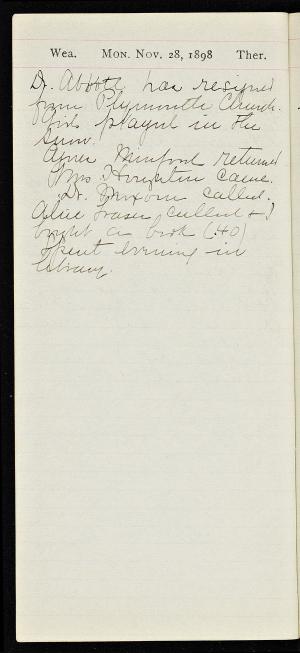 Wea. Mon. Nov. 28, 1898 Ther.
Dr. Abbott has resigned
from Plymouth Church.
Girls played in the
snow.
returned
Mrs. Houghton came.
Dr. called.
Alice Fraser called & I
bought a book (.40)
Spent evening in
library.